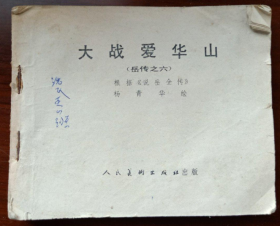 大战爱华山
(岳传之六)
根据《说岳全传》
杨青华绘
人民美术出版社出版